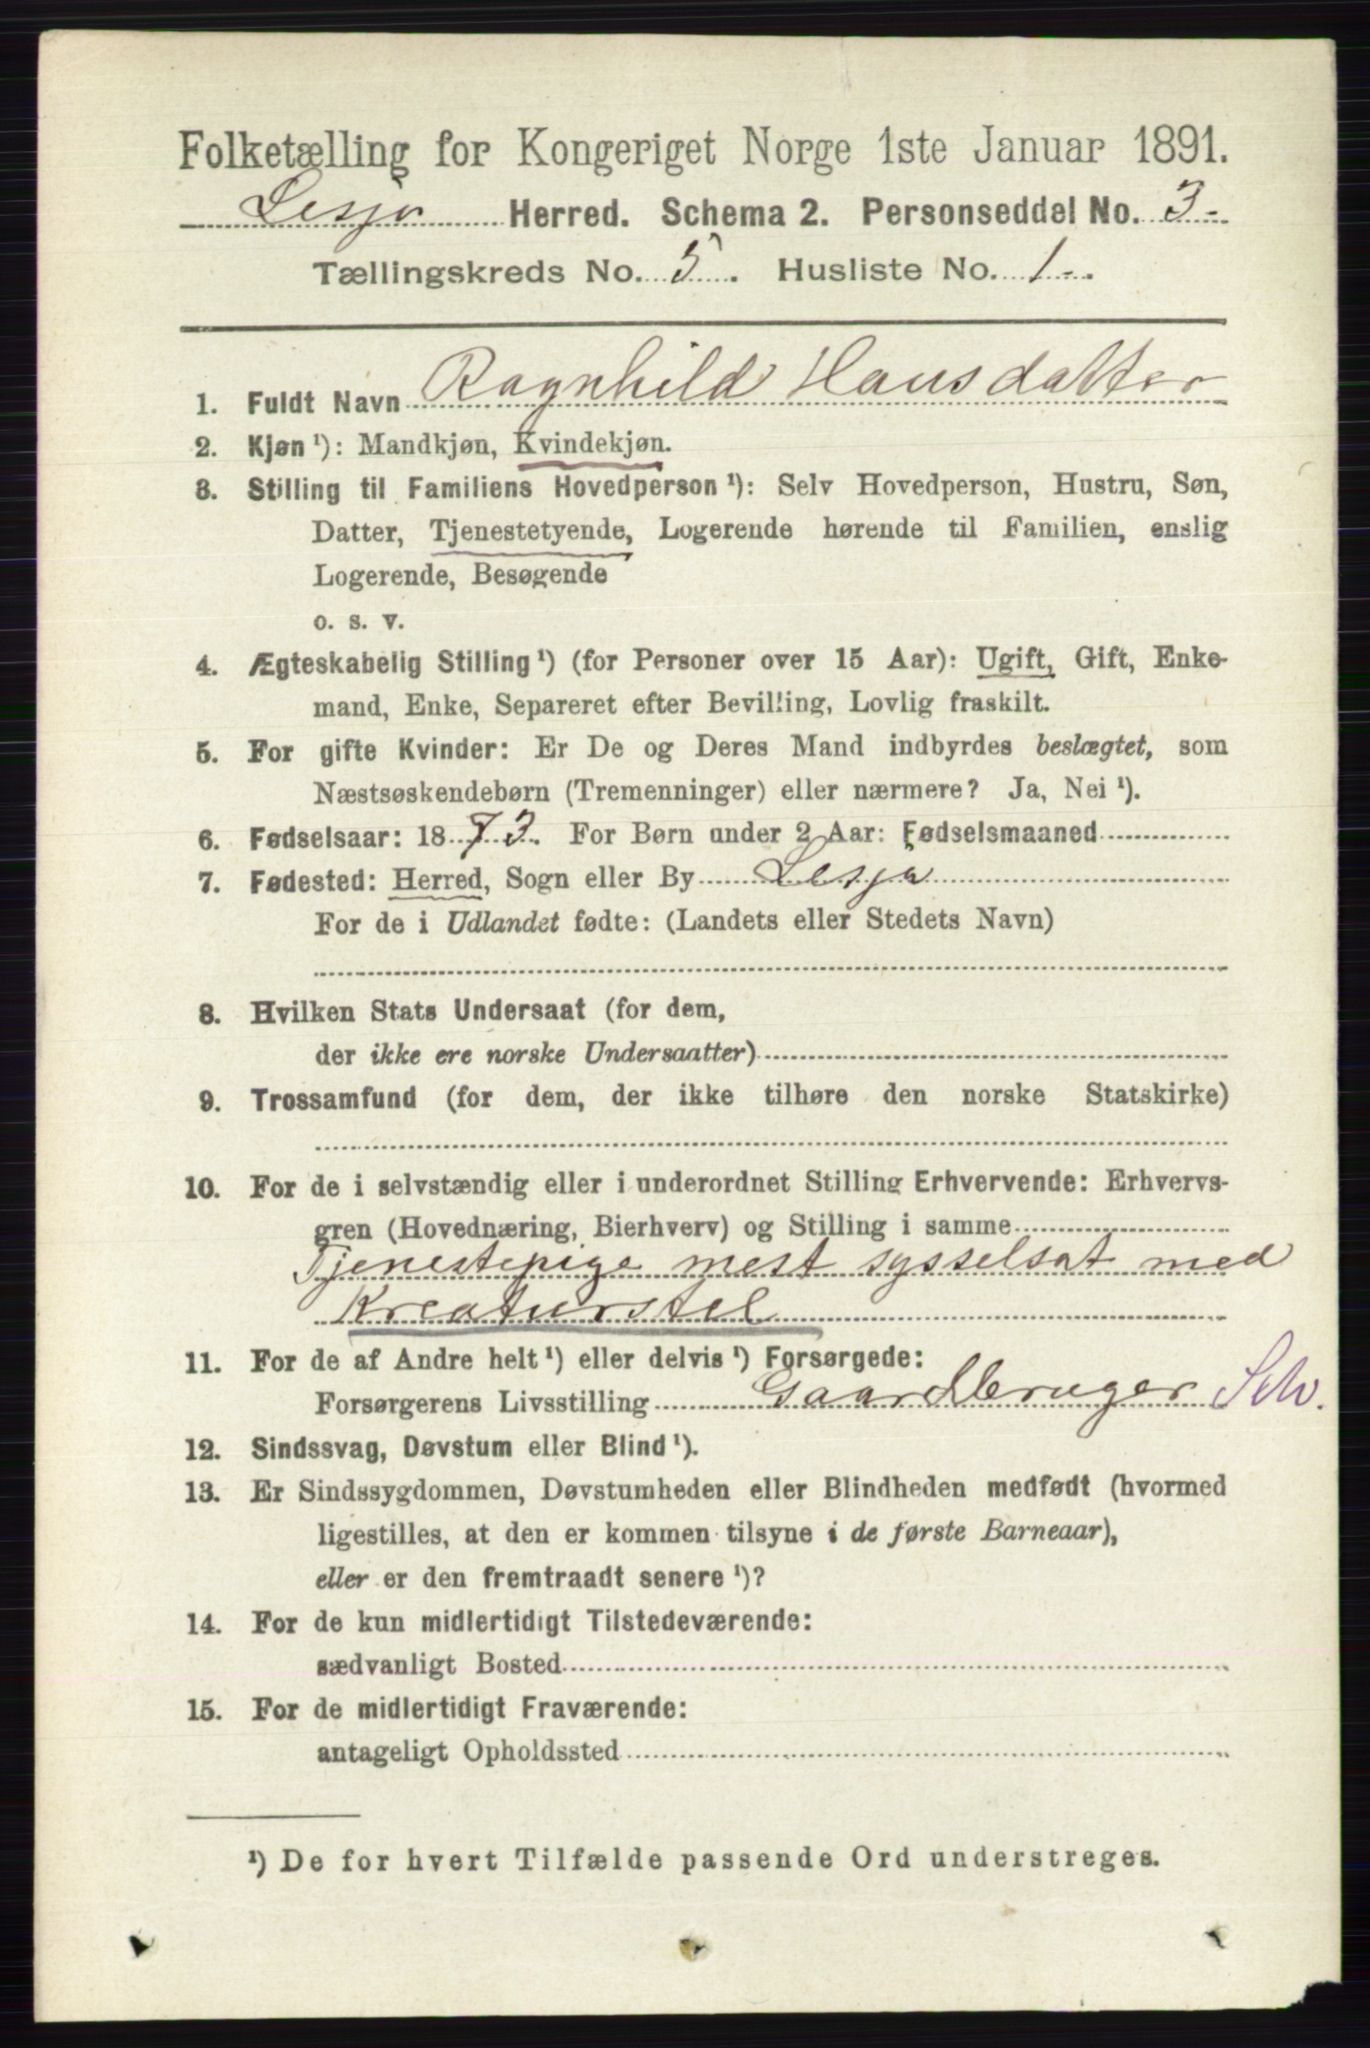 Folketælling for Kongeriget Norge 1ste Januar 1891.
Lesja Herred. Schema 2. Personseddel No. 3-
Tællingskreds No. 5. Husliste No. 1-.
1. Fuldt Navn Ragnhild Hansdatter
2. Kjøn ¹): Mandkjøn, Kvindekjøn.
3. Stilling til Familiens Hovedperson ¹): Selv Hovedperson, Hustru, Søn,
Datter, Tjenestetyende, Logerende hørende til Familien, enslig
Logerende, Besøgende
o. s. v.
4. Ægteskabelig Stilling ¹) (for Personer over 15 Aar): Ugift, Gift, Enke-
mand, Enke, Separeret efter Bevilling, Lovlig fraskilt.
5. For gifte Kvinder: Er De og Deres Mand indbyrdes beslægtet, som
Næstsøskendebørn (Tremenninger) eller nærmere? Ja, Nei ¹).
6. Fødselsaar: 1873. For Børn under 2 Aar: Fødselsmaaned
7. Fødested: Herred, Sogn eller By Lesja
For de i Udlandet fødte: (Landets eller Stedets Navn)
8. Hvilken Stats Undersaat (for dem,
der ikke ere norske Undersaatter)
9. Trossamfund (for dem, der ikke tilhøre den norske Statskirke)
10. For de i selvstændig eller i underordnet Stilling Erhvervende: Erhvervs-
gren (Hovednæring, Bierhverv) og Stilling i samme
Tjenestepige mest sysselsat med
Kreaturstel
11. For de af Andre helt ¹) eller delvis ¹) Forsørgede:
Forsørgerens Livsstilling Gaardbruger Selv.
12. Sindssvag, Døvstum eller Blind ¹).
13. Er Sindssygdommen, Døvstumheden eller Blindheden medfødt (hvormed
ligestilles, at den er kommen tilsyne i de første Barneaar),
eller er den fremtraadt senere ¹)?
14. For de kun midlertidigt Tilstedeværende:
sædvanligt Bosted
15. For de midlertidigt Fraværende:
antageligt Opholdssted
¹) De for hvert Tilfælde passende Ord understreges.